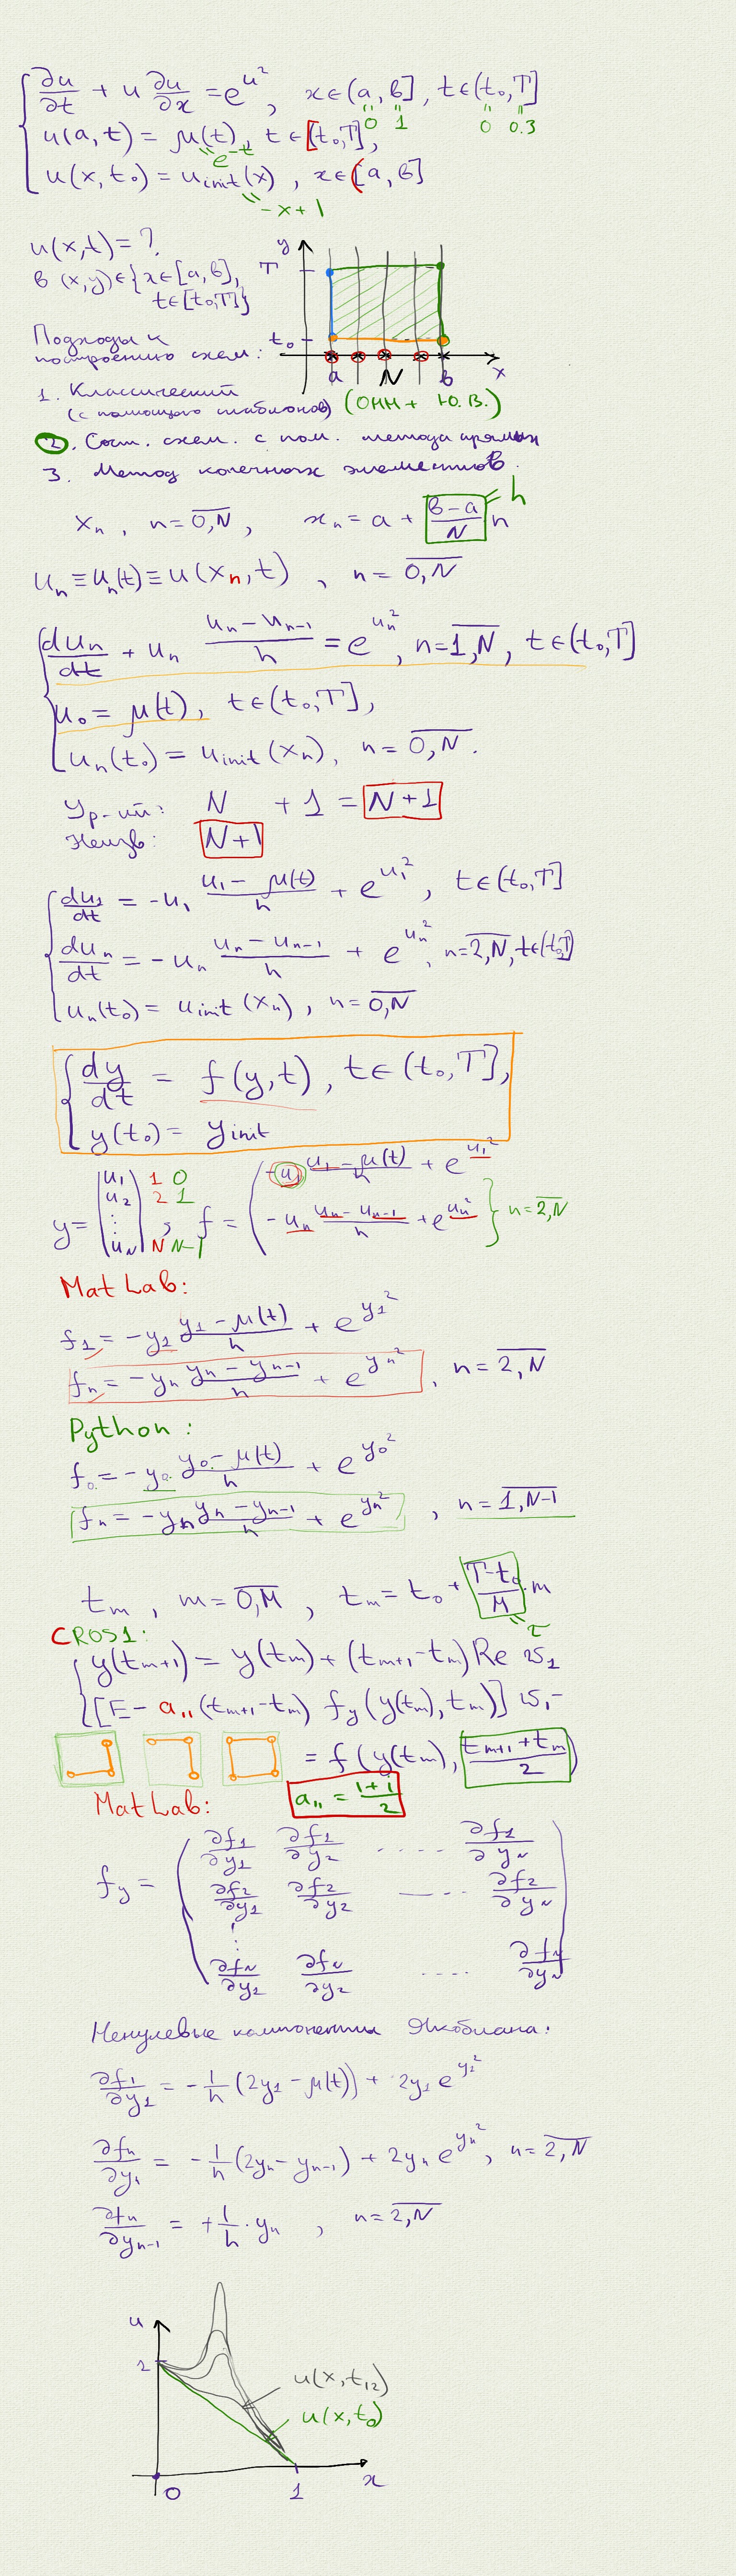 ∂u/∂t + u ∂u/∂x = e^{u²}, x∈(a, b], t∈(t₀,T]
0 1 0 0.3
u(a,t) = μ(t), t∈(t₀,T],
e^{-t}
u(x,t₀) = u_init(x), x∈[a,b]
-x+1
u(x,t) = ?
в (x,y)∈{x∈[a,b],
t∈[t₀,T]}
y
T
t₀
a N b x
Подходы к
построению схем:
1. Классический
(с помощью шаблонов) (ОНН + Ю.В.)
2. Сост. схем. с пом. метода прямых
3. Метод конечных элементов.
xₙ, n=0,N, xₙ = a + (b-a)/N n
h
uₙ ≡ uₙ(t) ≡ u(xₙ,t), n = 0,N
duₙ/dt + uₙ (uₙ - uₙ₋₁)/h = e^{uₙ²}, n=1,N, t∈(t₀,T]
u₀ = μ(t), t∈(t₀,T],
uₙ(t₀) = u_init(xₙ), n=0,N.
Ур-ий: N + 1 = N+1
Неизв: N+1
du₁/dt = -u₁ (u₁ - μ(t))/h + e^{u₁²}, t∈(t₀,T]
duₙ/dt = -uₙ (uₙ - uₙ₋₁)/h + e^{uₙ²}, n=2,N, t∈(t₀,T]
uₙ(t₀) = u_init(xₙ), n=0,N
dy/dt = f(y,t), t∈(t₀,T],
y(t₀) = y_init
y = (u₁ u₂ ⋮ u_N) 1 0 2 1 N N-1 ; f = (-u₁ (u₁ - μ(t))/h + e^{u₁²}
-uₙ (uₙ - uₙ₋₁)/h + e^{uₙ²} } n=2,N
MatLab:
f₁ = -y₁ (y₁ - μ(t))/h + e^{y₁²}
fₙ = -yₙ (yₙ - yₙ₋₁)/h + e^{yₙ²}, n = 2,N
Python:
f₀ = -y₀ (y₀ - μ(t))/h + e^{y₀²}
fₙ = -yₙ (yₙ - yₙ₋₁)/h + e^{yₙ²}, n = 1,N-1
tₘ, m=0,M, tₘ = t₀ + (T-t₀)/M · m
τ
CROS1:
y(tₘ₊₁) = y(tₘ) + (tₘ₊₁ - tₘ) Re w₁
[E - a₁₁(tₘ₊₁ - tₘ) f_y(y(tₘ), tₘ)] w₁ =
= f(y(tₘ), (tₘ₊₁ + tₘ)/2)
a₁₁ = (1+i)/2
MatLab:
f_y = (∂f₁/∂y₁ ∂f₁/∂y₂ .... ∂f₁/∂y_N
∂f₂/∂y₁ ∂f₂/∂y₂ .... ∂f₂/∂y_N
⋮
∂f_N/∂y₁ ∂f_N/∂y₂ .... ∂f_N/∂y_N)
Ненулевые компоненты Якобиана:
∂f₁/∂y₁ = -1/h (2y₁ - μ(t)) + 2y₁ e^{y₁²}
∂fₙ/∂yₙ = -1/h (2yₙ - yₙ₋₁) + 2yₙ e^{yₙ²}, n=2,N
∂fₙ/∂yₙ₋₁ = +1/h · yₙ, n=2,N
u
2
u(x,t₁₂)
u(x,t₀)
0 1 x